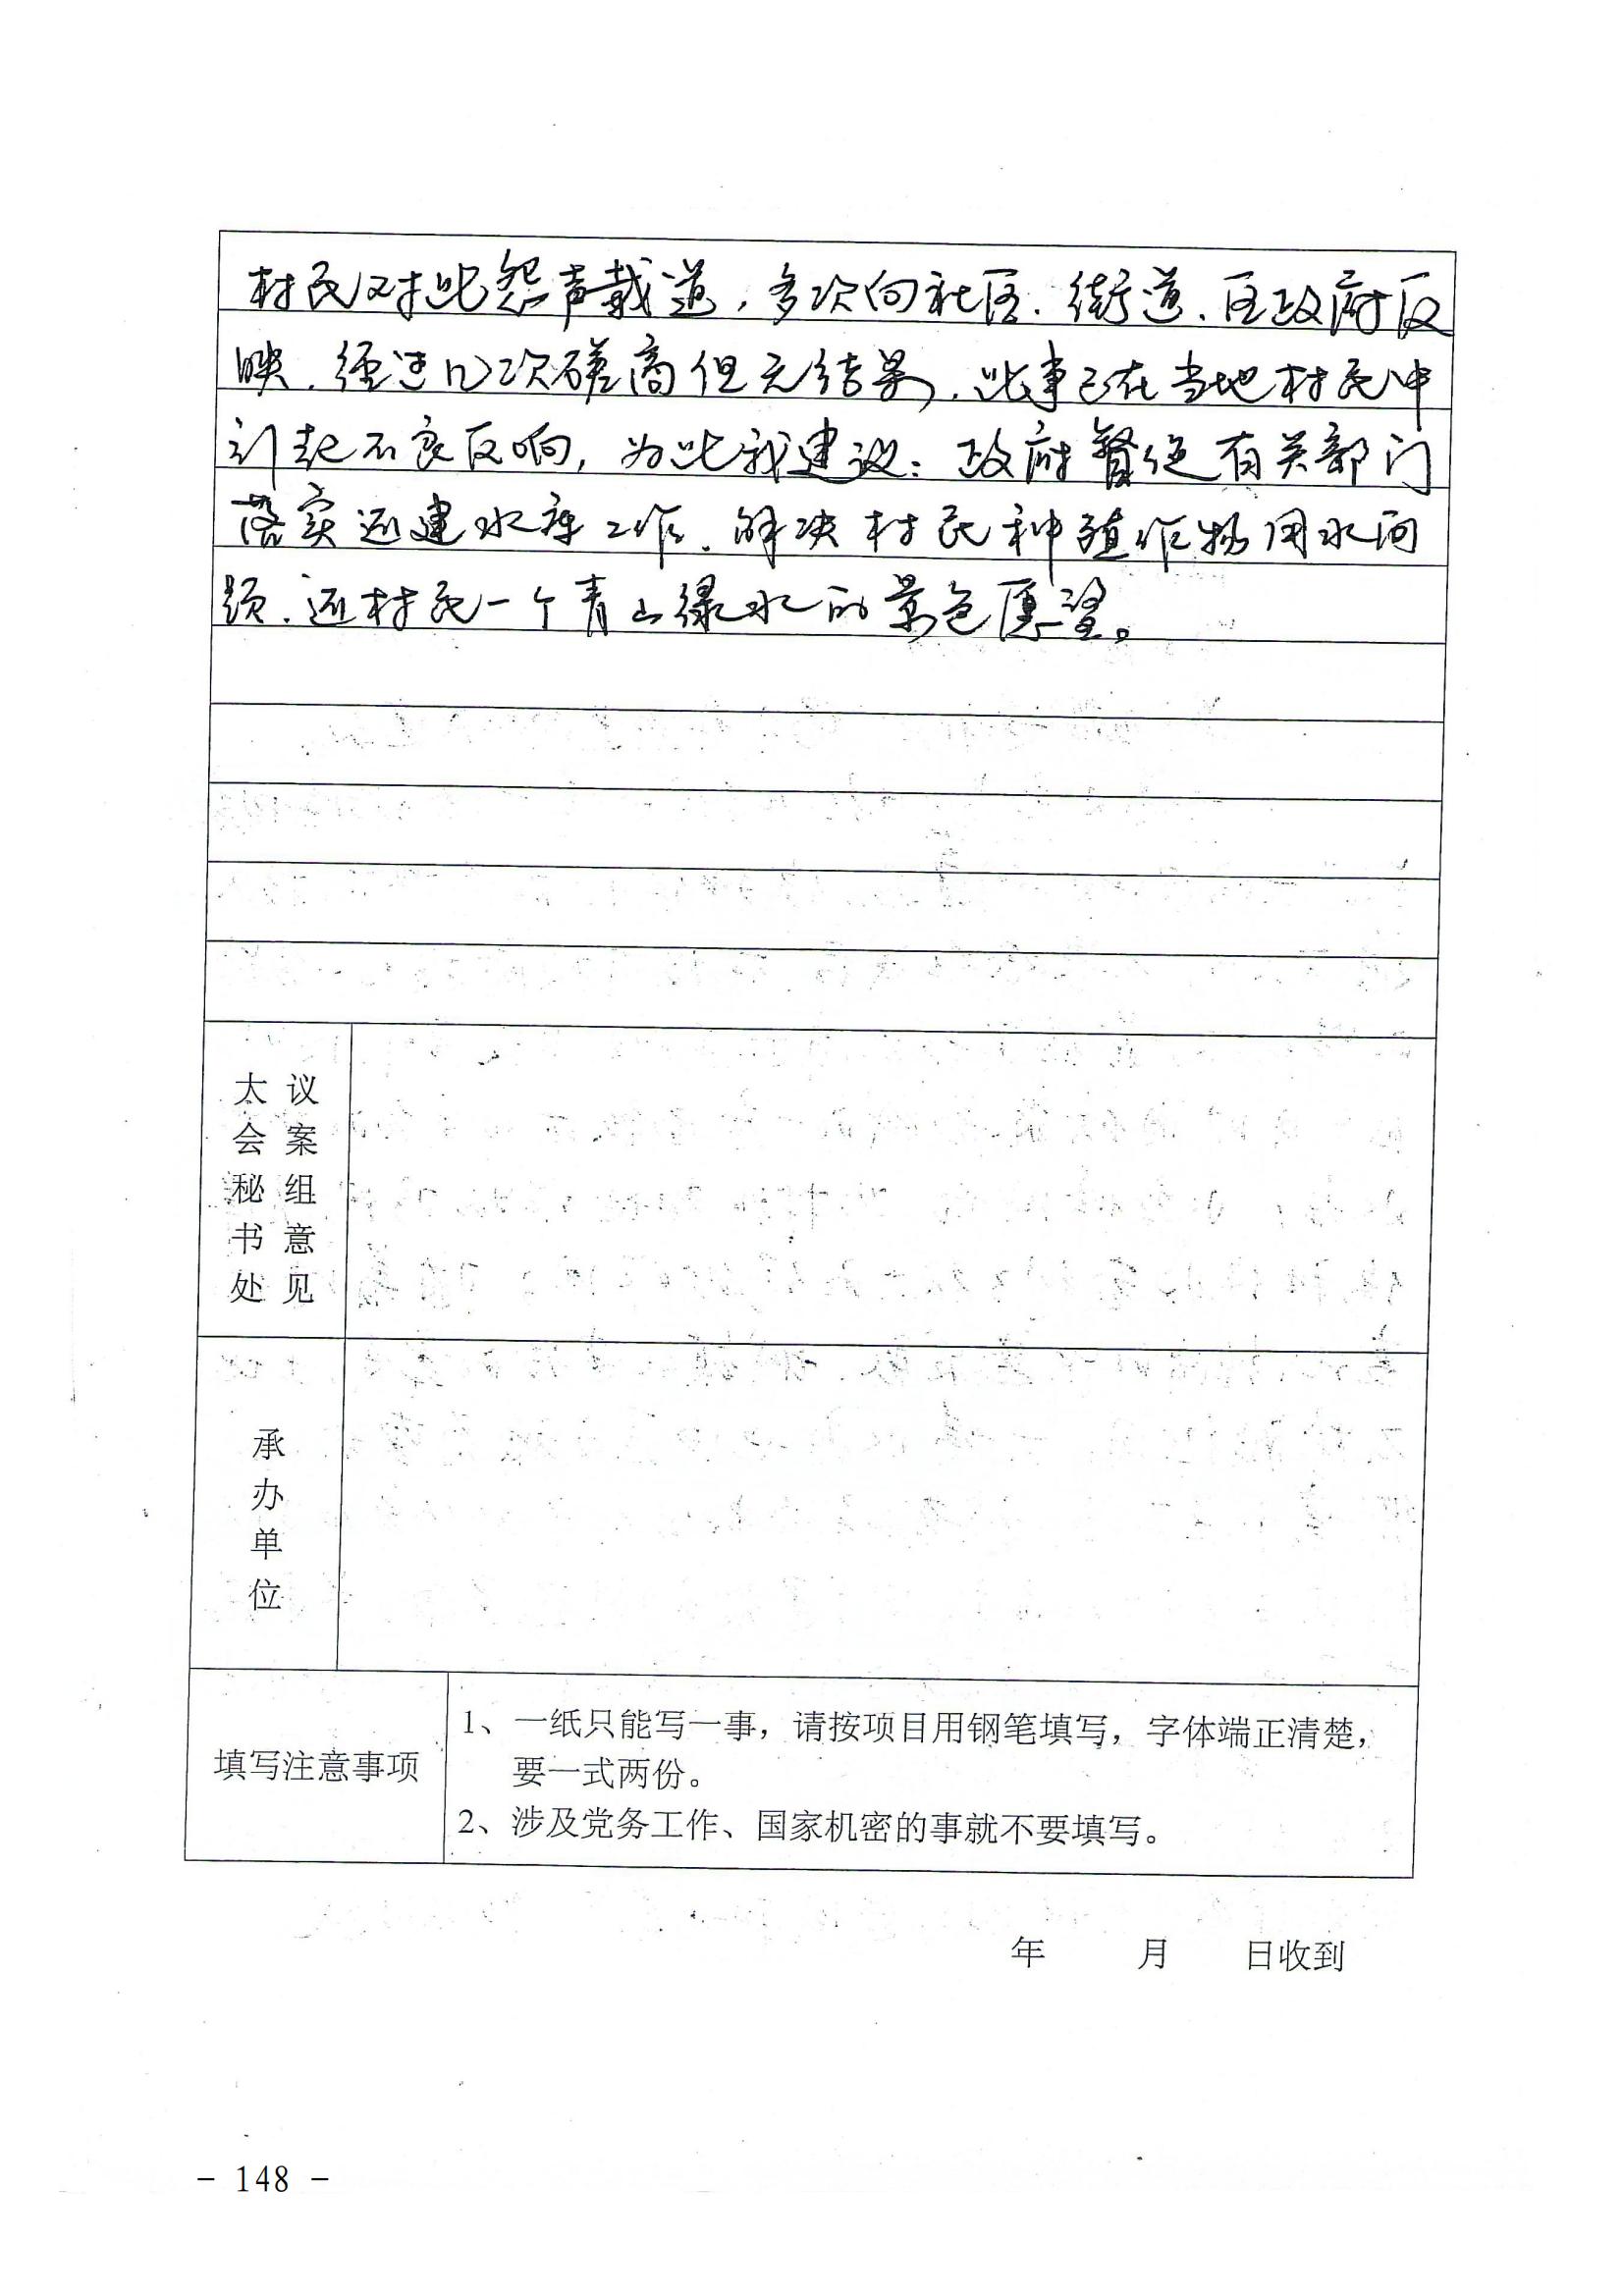 村民对此怨声载道，多次向社区、街道、区政府反
映，经过几次磋商但无结果，此事已在当地村民中
引起不良反响，为此我建议：政府督促有关部门
落实还建水库工作，解决村民种殖作物用水问
题，还村民一个青山绿水的景色愿望。
大会秘书处
议案组意见
承办单位
填写注意事项
1、一纸只能写一事，请按项目用钢笔填写，字体端正清楚，
要一式两份。
2、涉及党务工作、国家机密的事就不要填写。
年 月 日收到
- 148 -